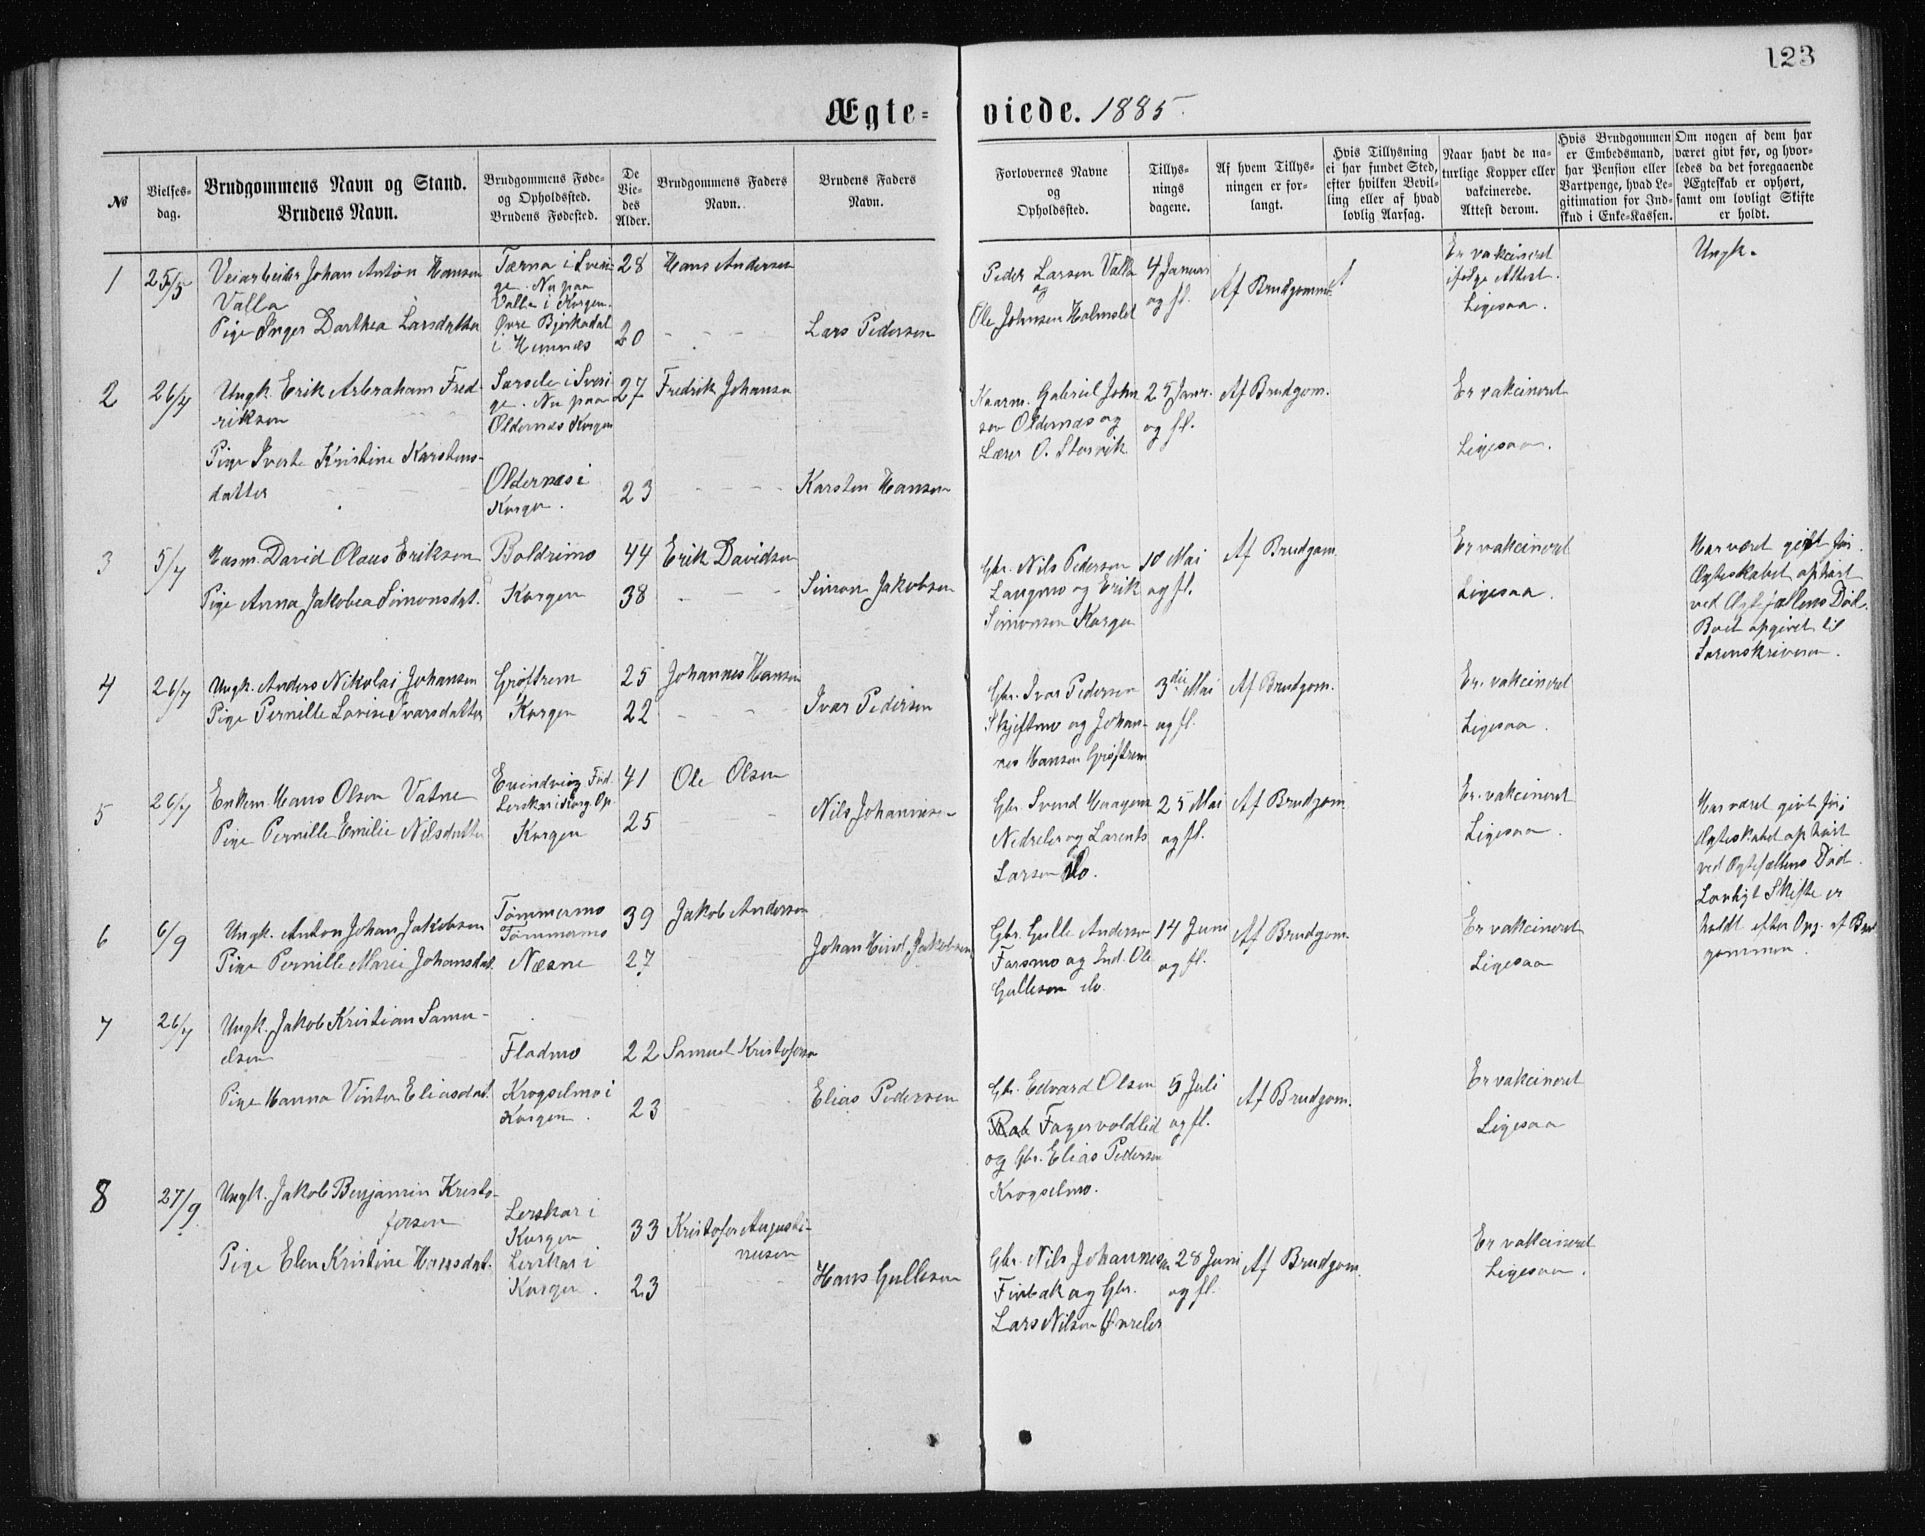 123
Ægte-viede. 1885.
№
Vielses-
dag.
Brudgommens Navn og Stand.
Brudens Navn.
Brudgommens Føde-
og Opholdssted.
Brudens Fødested.
De
Vie-
des
Alder.
Brudgommens Faders
Navn.
Brudens Faders
Navn.
Forlovernes Navne
og
Opholdssted.
Tillys-
nings
dagene.
Af hvem Tillys-
ningen er for-
langt.
Hvis Tillysning
ei har fundet Sted,
efter hvilken Bevil-
ling eller af hvad
lovlig Aarsag.
Naar havt de na-
turlige Kopper eller
vakcinerede.
Attest derom.
Hvis Brudgommen
er Embedsmand,
har Pension eller
Vartpenge, hvad Le-
gitimation for Ind-
skud i Enke-Kassen.
Om nogen af dem har
været givt før, og hvor-
ledes da det foregaaende
Ægteskab er ophørt,
samt om lovligt Skifte
er holdt.
1
25/5
Veiarbeider Johan Anton Hansen
Valla
Pige Inger Dorthea Larsdatter
Tærna i Sveri-
ge. Nu paa
Valla i Korgen.
Øvre Bjerkadal
i Hemnæs
28
20
Hans Andersen
Lars Pedersen
Peder Larsen Valla
og
Ole Johnsen Holmslet
4 Januar
og fl.
Af Brudgommen
Er vakcineret
ifølge Attest.
Ligesaa.
Ungk.
2
26/7
Ungk. Erik Arbraham Fred-
riksen
Pige Iverte Kristine Karstens-
datter
Sorsele i Sveri-
ge. Nu paa
Oldernæs Korgen
Oldernæs i
Korgen.
27
23
Fredrik Johansen
Karsten Hansen
Kaarm. Gabriel John
sen Oldernæs og
Lærer O. Storvik
25 Janr.
og fl.
Af Brudgom.
Er vakcineret
Ligesaa.
3
5/7
Husm. David Olaus Eriksen
Pige Anna Jakobea Simonsdat.
Boldrimo
Korgen
44
38
Erik Davidsen
Simon Jakobsen
Gbr. Nils Pedersen
Langmo og Erik
Simonsen Korgen
10 Mai
og fl.
Af Brudgom.
Er vakcineret
Ligesaa.
Har været gift før.
Ægteskabet ophørt
ved Ægtefællens Død.
Boet opgivet til
Sorenskriveren.
4
26/7
Ungk. Anders Nikolai Johansen
Pige Pernille Lovise Ivarsdatter
Grøftrem
Korgen
25
22
Johannes Hansen
Ivar Pedersen
Gbr. Ivar Pedersen
Skjeftmo og Johan-
nes Hansen Grøftrem
3die Mai
og fl.
Af Brudgom.
Er vakcineret
Ligesaa.
5
26/7
Enkem. Hans Olsen Vatne
Pige Pernille Emilie Nilsdatter
Lerskar i Korg. Op.
Korgen
41
25
Ole Olsen
Nils Johannesen
Gbr. Svend Haagens
Nedreler og Larents
Larsen do.
25 Mai
og fl.
Af Brudgom.
Er vakcineret
Ligesaa.
Har været givt før;
Ægteskabet ophørt
ved Ægtefællens Død.
Lovligt Skifte er
holdt efter Opg. af Brud
gommen.
6
6/9
Ungk. Anton Johan Jakobsen
Pige Pernille Marie Johansdat.
Tømmermo
Tømmermo
Næsne
39
27
Jakob Andersen
Johan Hind. Jakobsen
Gbr. Gulle Andersen
Farsmo og Ind. Ole
Gullesen do.
14 Juni
og fl.
Af Brudgom.
Er vakcineret
Ligesaa
7
26/7
Ungk. Jakob Kristian Samu-
elsen
Pige Hanna Vinter Eliasdat.
Fladmo
Krogselmo i
Korgen.
22
23
Samuel Kristofersen
Elias Pedersen
Gbr. Edvard Olsen
Rab Fagervoldlid
og Gbr. Elias Pedersen
Krogselmo.
5 Juli
og fl.
Af Brudgom.
Er vakcineret
Ligesaa
8
27/9
Ungk. Jakob Benjamin Kristo-
fersen
Pige Elen Kristine Hansdat.
Lerskar i
Korgen
Lerskar i
Korgen.
33
23
Kristofer Augusti-
nusen
Hans Gullesen
Gbr. Nils Johannesen
Finbak og Gbr.
Lars Nilsen Øvreler
28 Juni
og fl.
Af Brudgom.
Er vakcineret
Ligesaa.